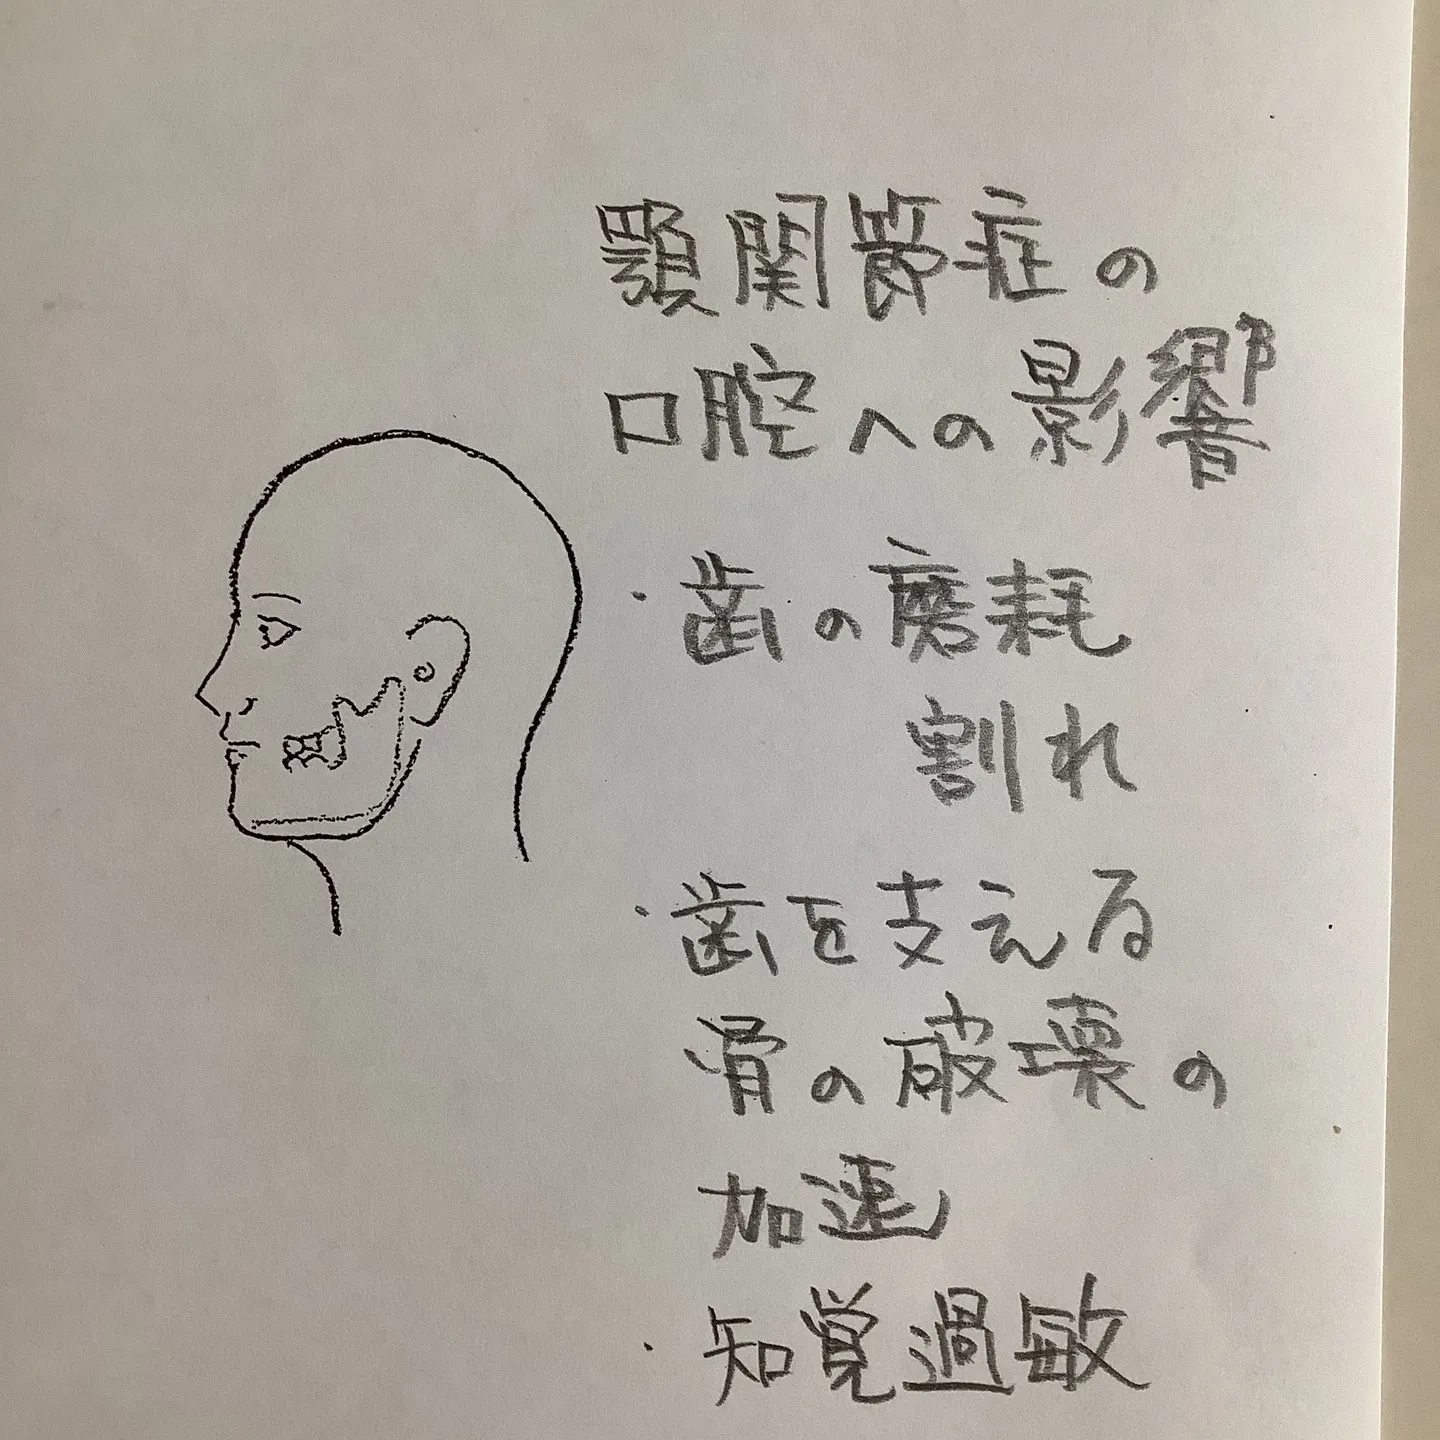 顎関節症の
口腔への影響
・歯の磨耗
割れ
・歯を支える
骨の破壊の
加速
・知覚過敏